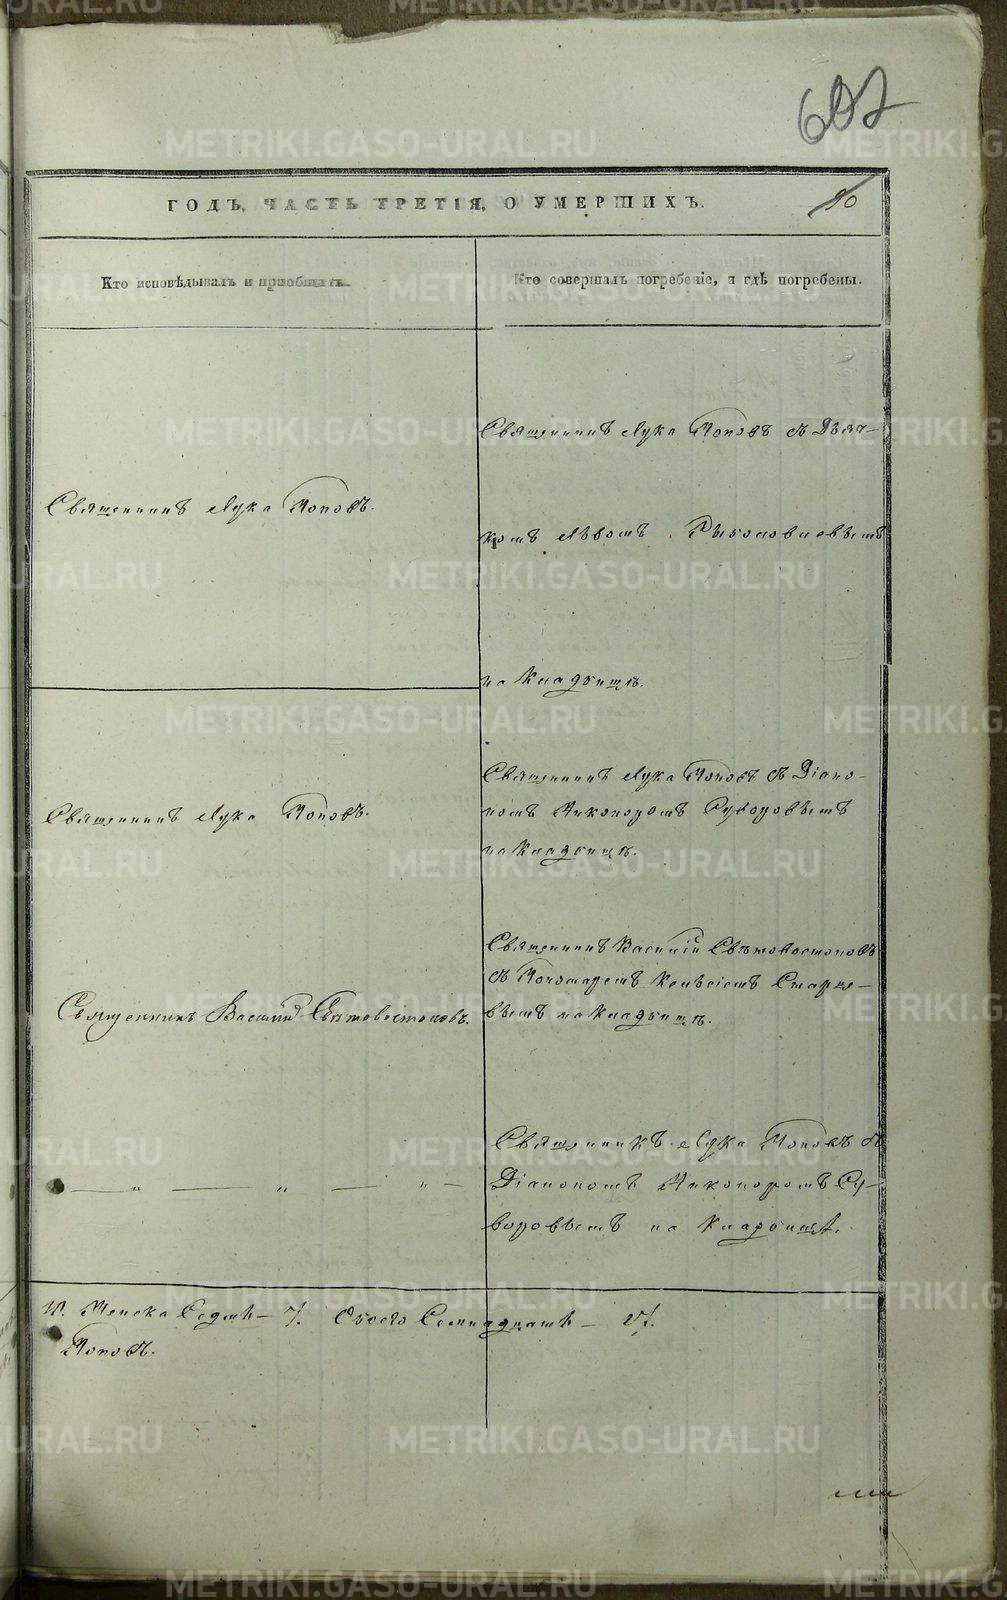 607
ГОДЪ, ЧАСТЬ ТРЕТІЯ, О УМЕРШИХЪ.
10
Кто исповѣдывалъ и пріобщалъ.
Кто совершалъ погребеніе, и гдѣ погребены.
Священникъ Лука Поповъ.
Священникъ Лука Поповъ съ Дьяч-
комъ Львомъ
на кладбищѣ.
Священникъ Лука Поповъ.
Священникъ Лука Поповъ съ Діако-
номъ Никоноромъ Суворовымъ
на кладбищѣ.
Священникъ Василій Свѣтовостоковъ.
Священникъ Василій Свѣтовостоковъ
съ Пономаремъ Старце-
вымъ на кладбищѣ.
— „ — „ — „ —
Священникъ Лука Поповъ съ
Діакономъ Никоноромъ Су-
воровымъ на кладбищѣ.
Женска Седмь — 7. Обоего Семнадцать — 17.
Поповъ.
METRIKI.GASO-URAL.RU